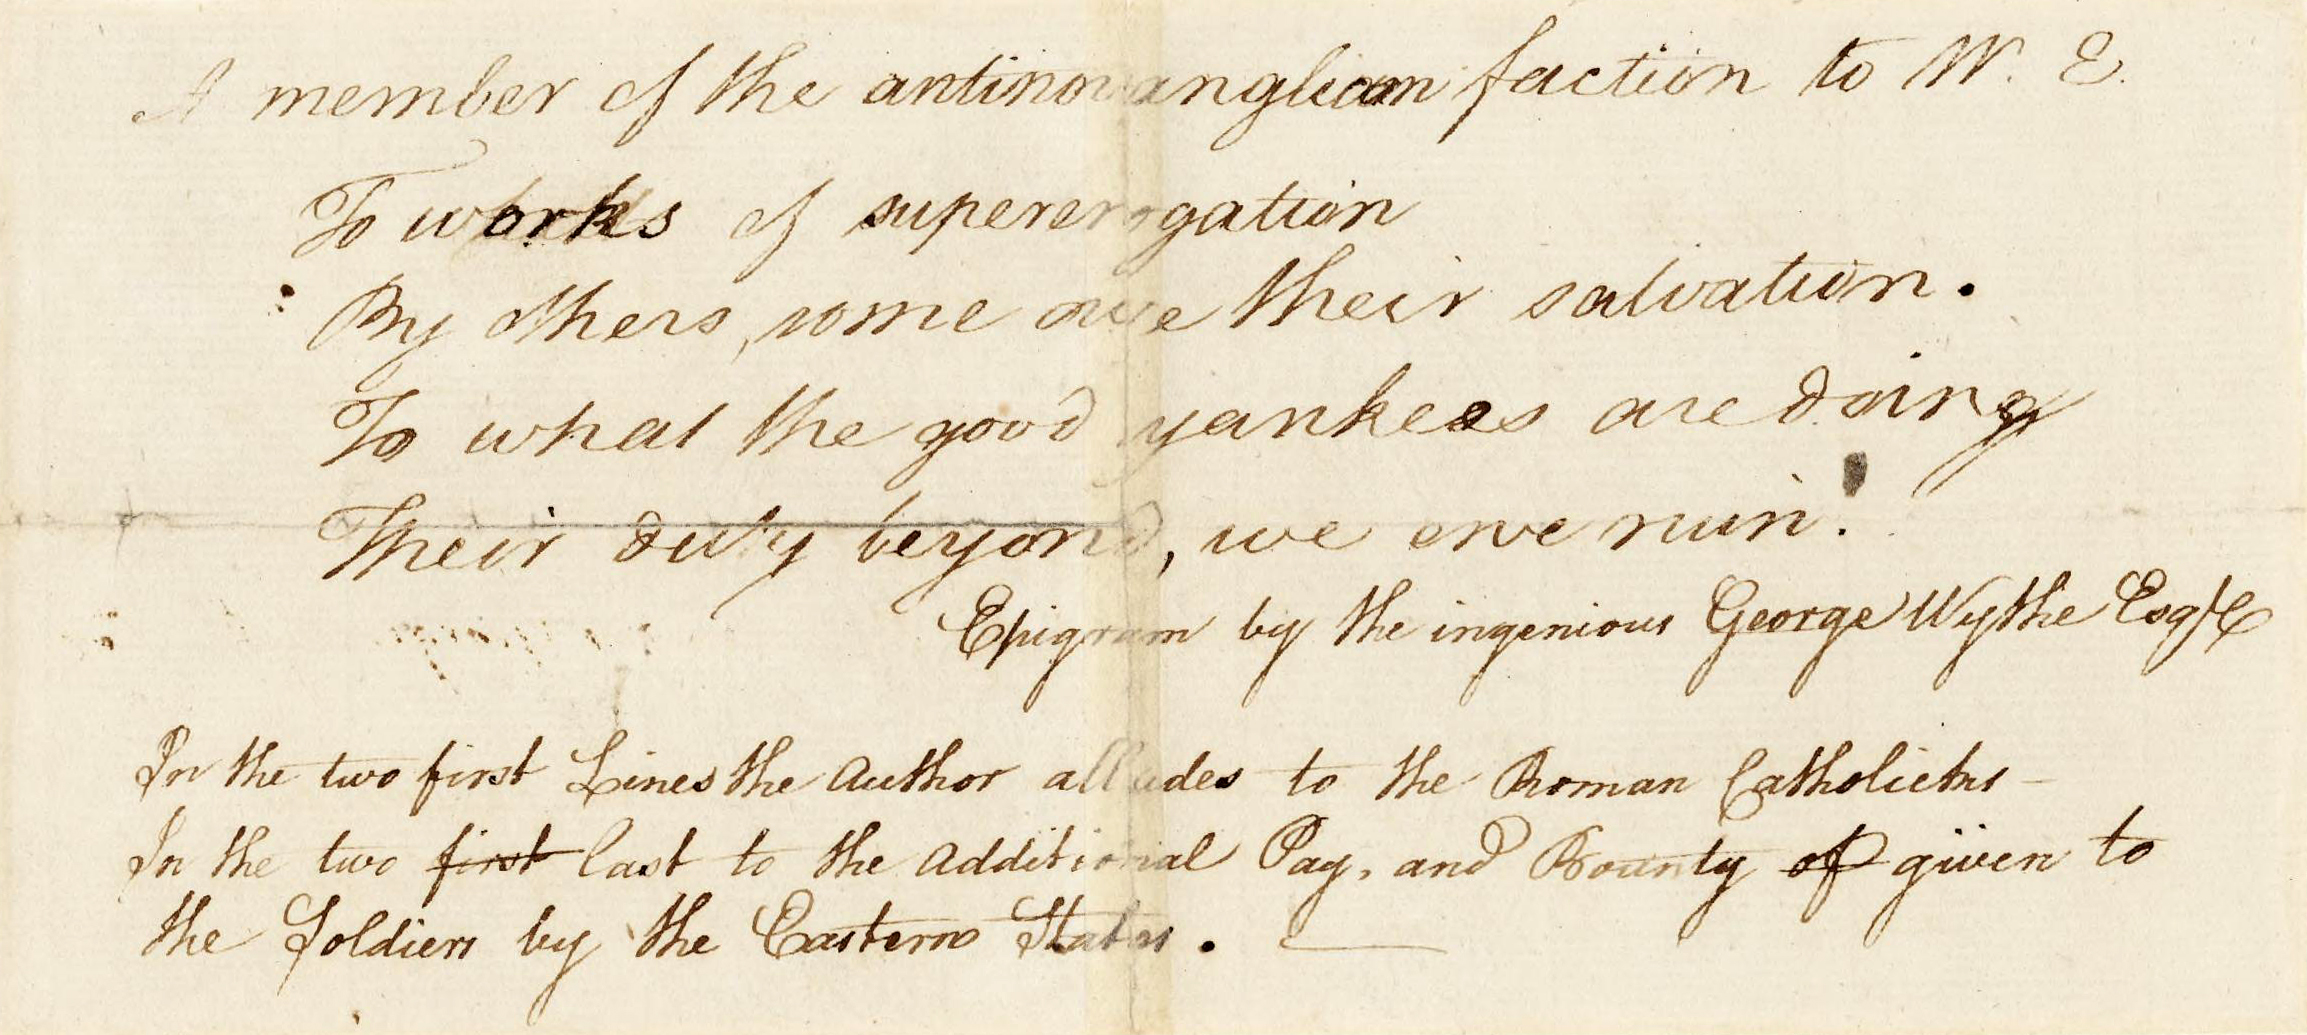 A member of the antinovanglican faction to W. E.
To works of supererrogation
By others, some owe their salvation.
To what the good yankees are doing
Their duty beyond, we owe ruin.
Epigram by the ingenious George Wythe Esqr
In the two first Lines the Author alludes to the Roman Catholicks –
In the two first last to the Additional Pay, and Bounty of given to
the Soldiers by the Eastern States. —